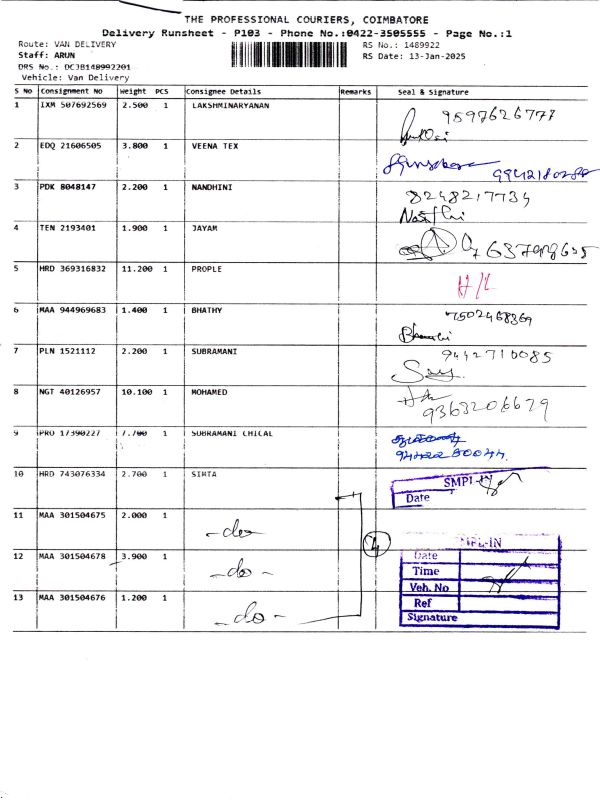 THE PROFESSIONAL COURIERS, COIMBATORE
Delivery Runsheet - P103 - Phone No.:0422-3505555 - Page No.:1
Route: VAN DELIVERY
RS No.: 1489922
Staff: ARUN
RS Date: 13-Jan-2025
DRS No.: DCJB148992201
Vehicle: Van Delivery
S No Consignment No Weight PCS Consignee Details Remarks Seal & Signature
1 IXM 507692569 2.500 1 LAKSHMINARYANAN 9597626777
2 EDQ 21606505 3.800 1 VEENA TEX
3 PDK 8048147 2.200 1 NANDHINI 8248217734
4 TEN 2193401 1.900 1 JAYAM
5 HRD 369316832 11.200 1 PROPLE H/L
6 MAA 944969683 1.400 1 BHATHY 7502468369
7 PLN 1521112 2.200 1 SUBRAMANI 9442710085
8 NGT 40126957 10.100 1 MOHAMED 9363206679
9 PRO 17390227 7.700 1 SUBRAMANI CHICAL
10 HRD 743076334 2.700 1 SIMTA SMPL-IN
Date
11 MAA 301504675 2.000 1 -do-
12 MAA 301504678 3.900 1 -do- 4
13 MAA 301504676 1.200 1 -do-
SMPL-IN
Date
Time
Veh. No
Ref
Signature